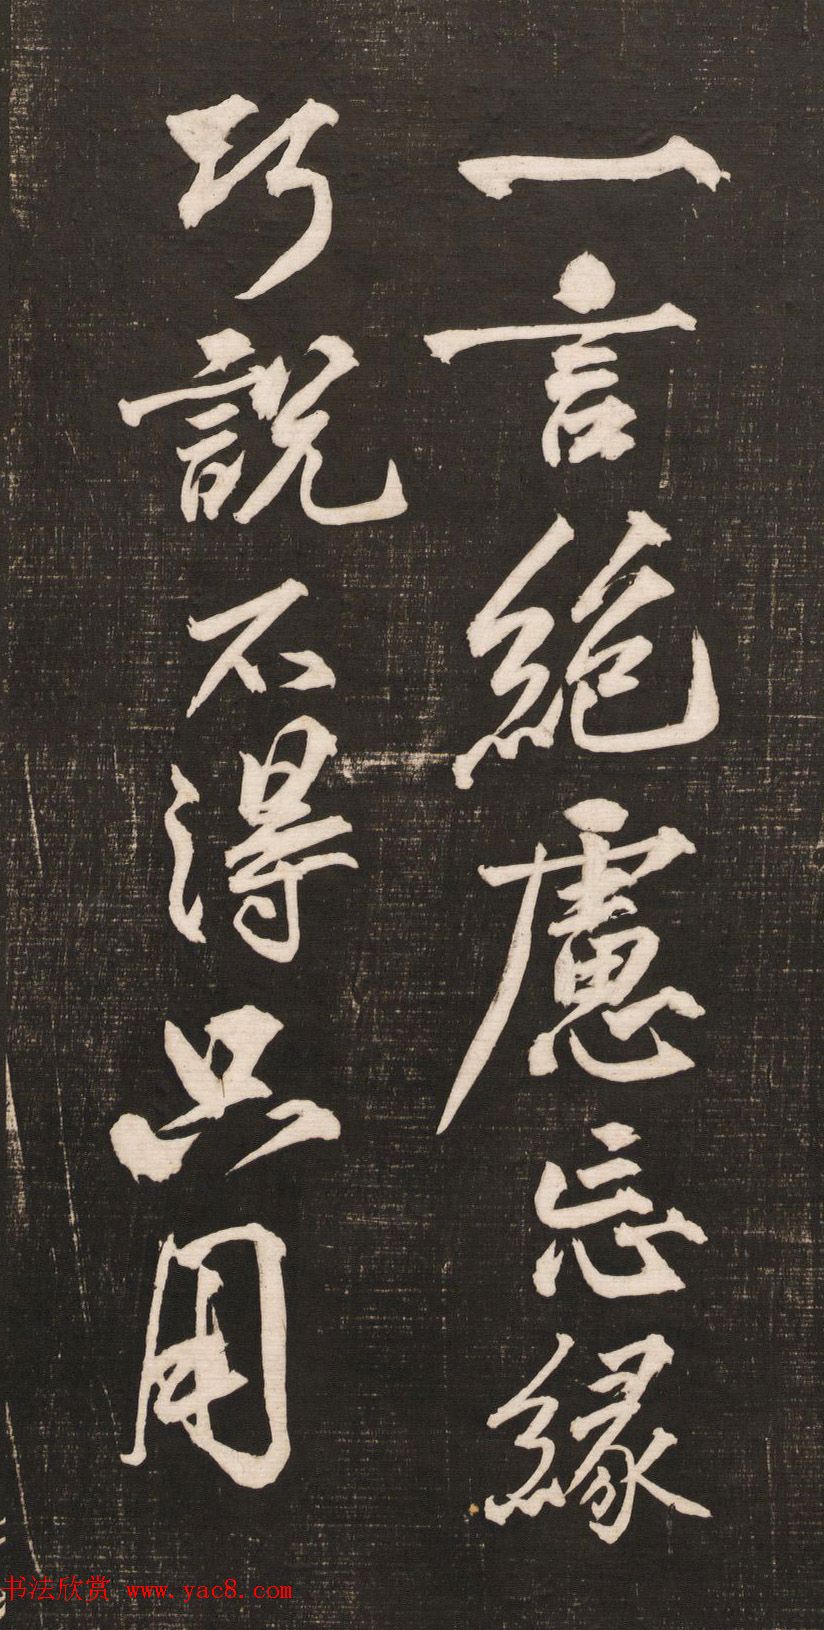 一言絕慮忘緣
巧說不得只用
书法欣赏 www.yac8.com